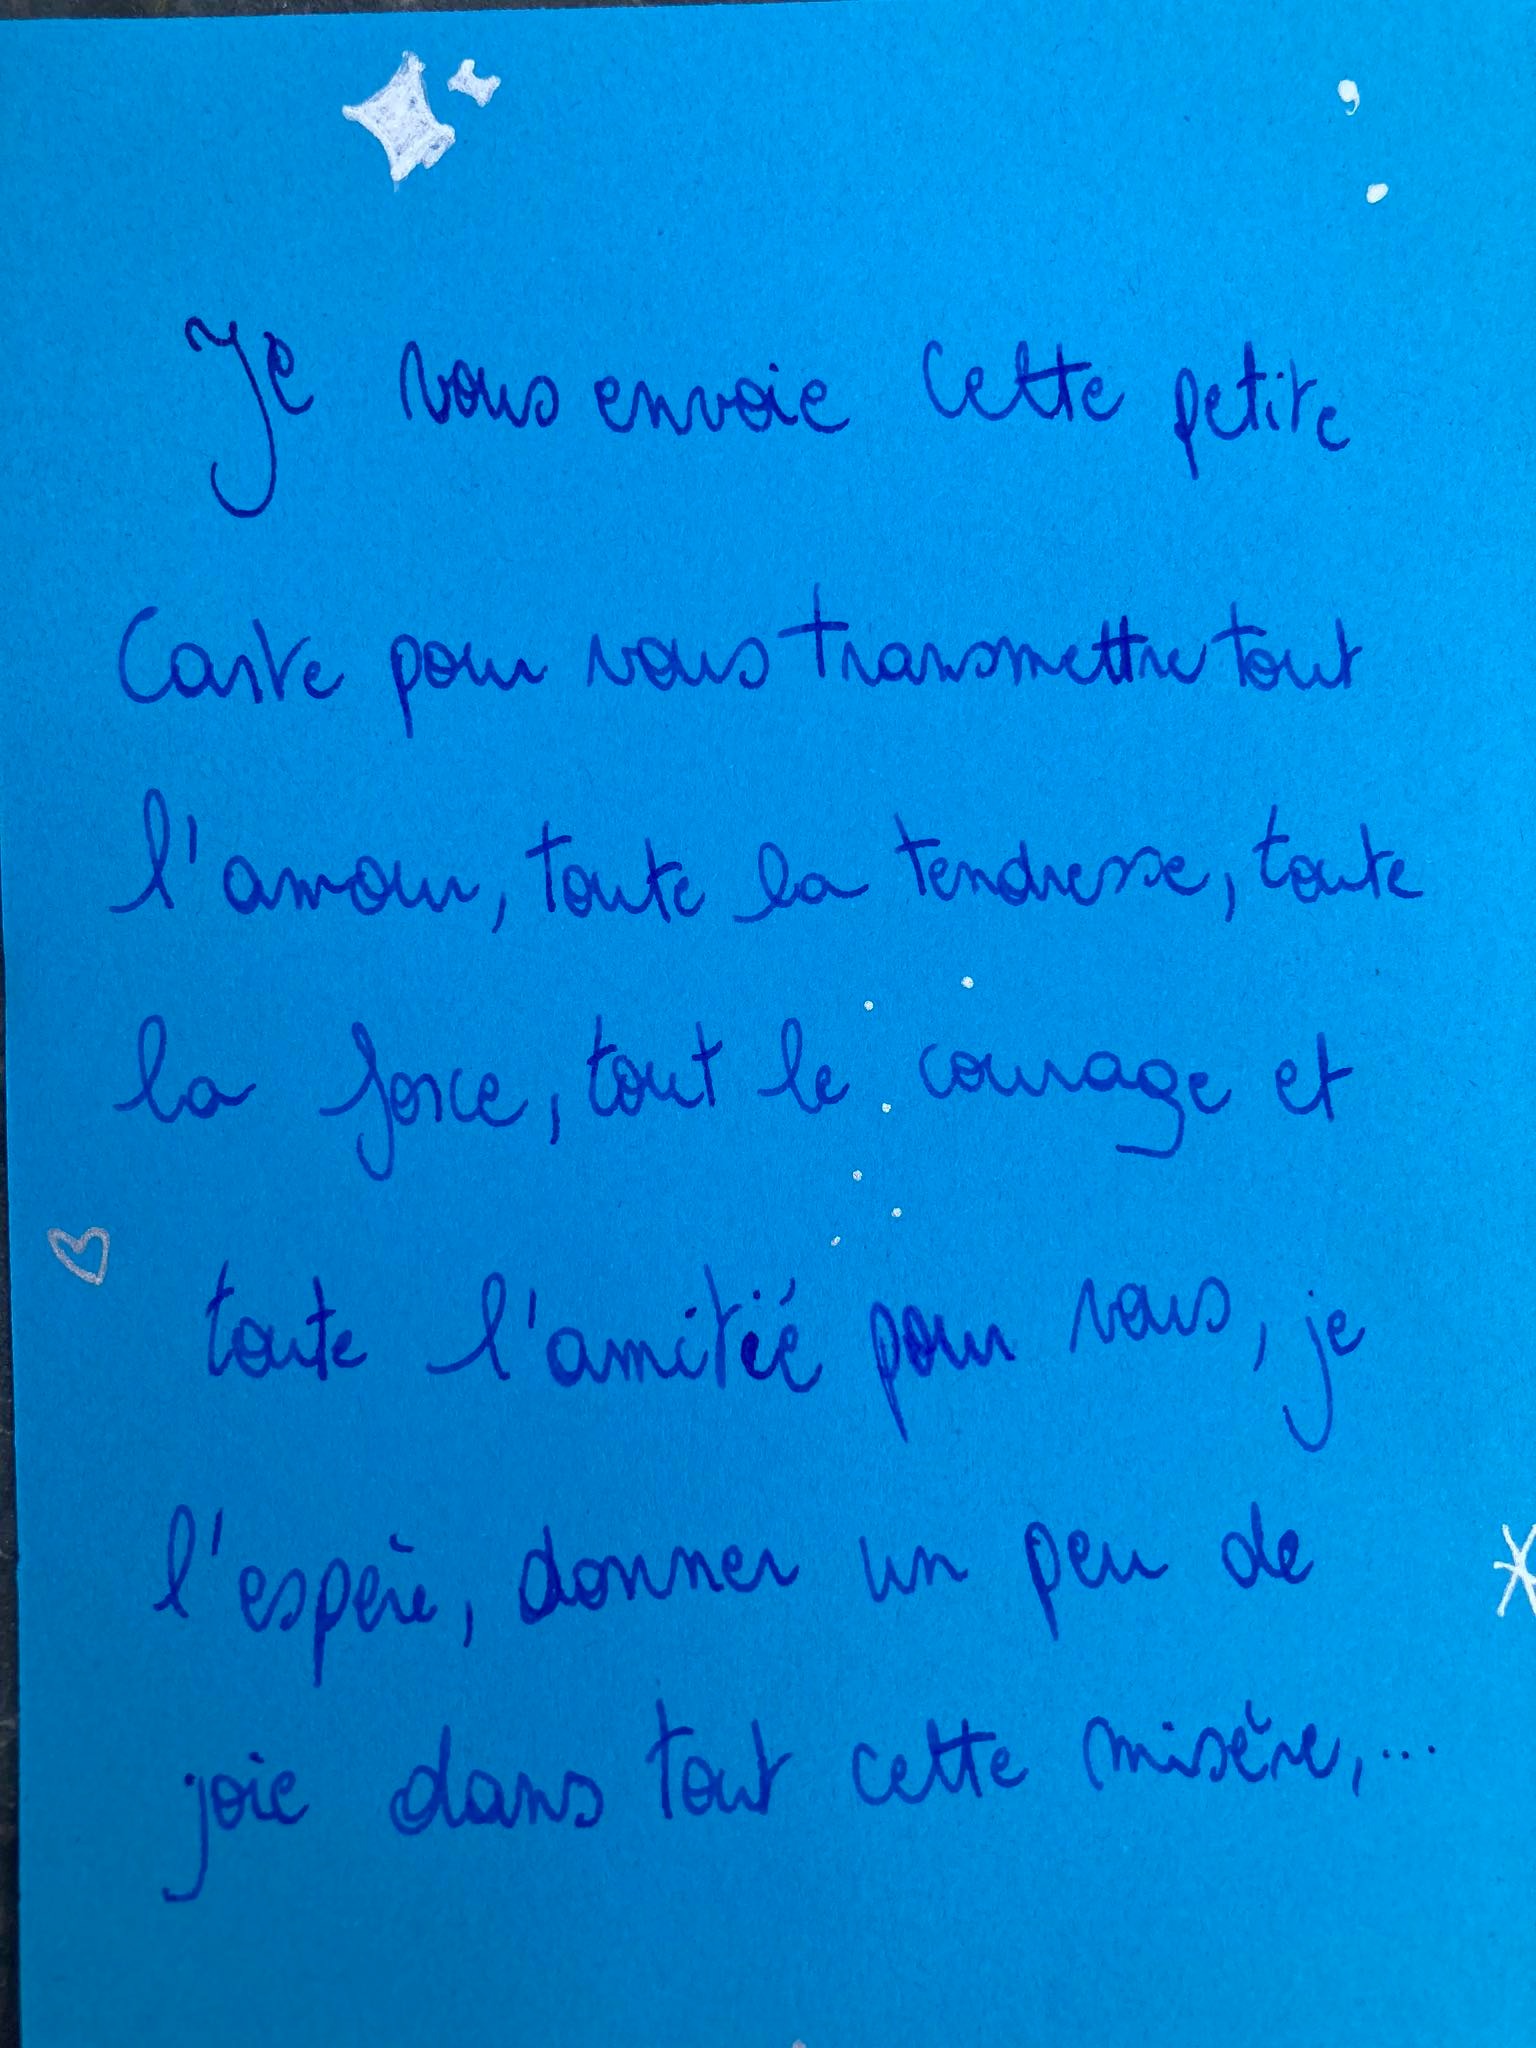 Je vous envoie cette petite
Carte pour vous transmettre tout
l'amour, toute la tendresse, toute
la force, tout le courage et
toute l'amitié pour vous, je
l'espère, donner un peu de
joie dans tout cette misère,...